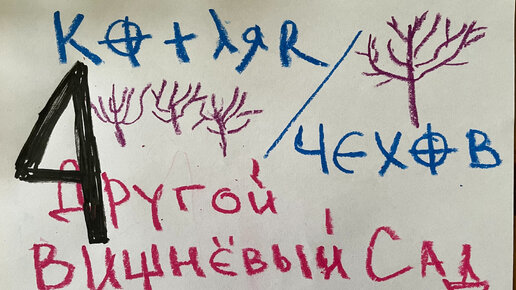 КОТЛЯR /
ЧЕХОВ
4
ДРУГОЙ
ВИШНЁВЫЙ САД